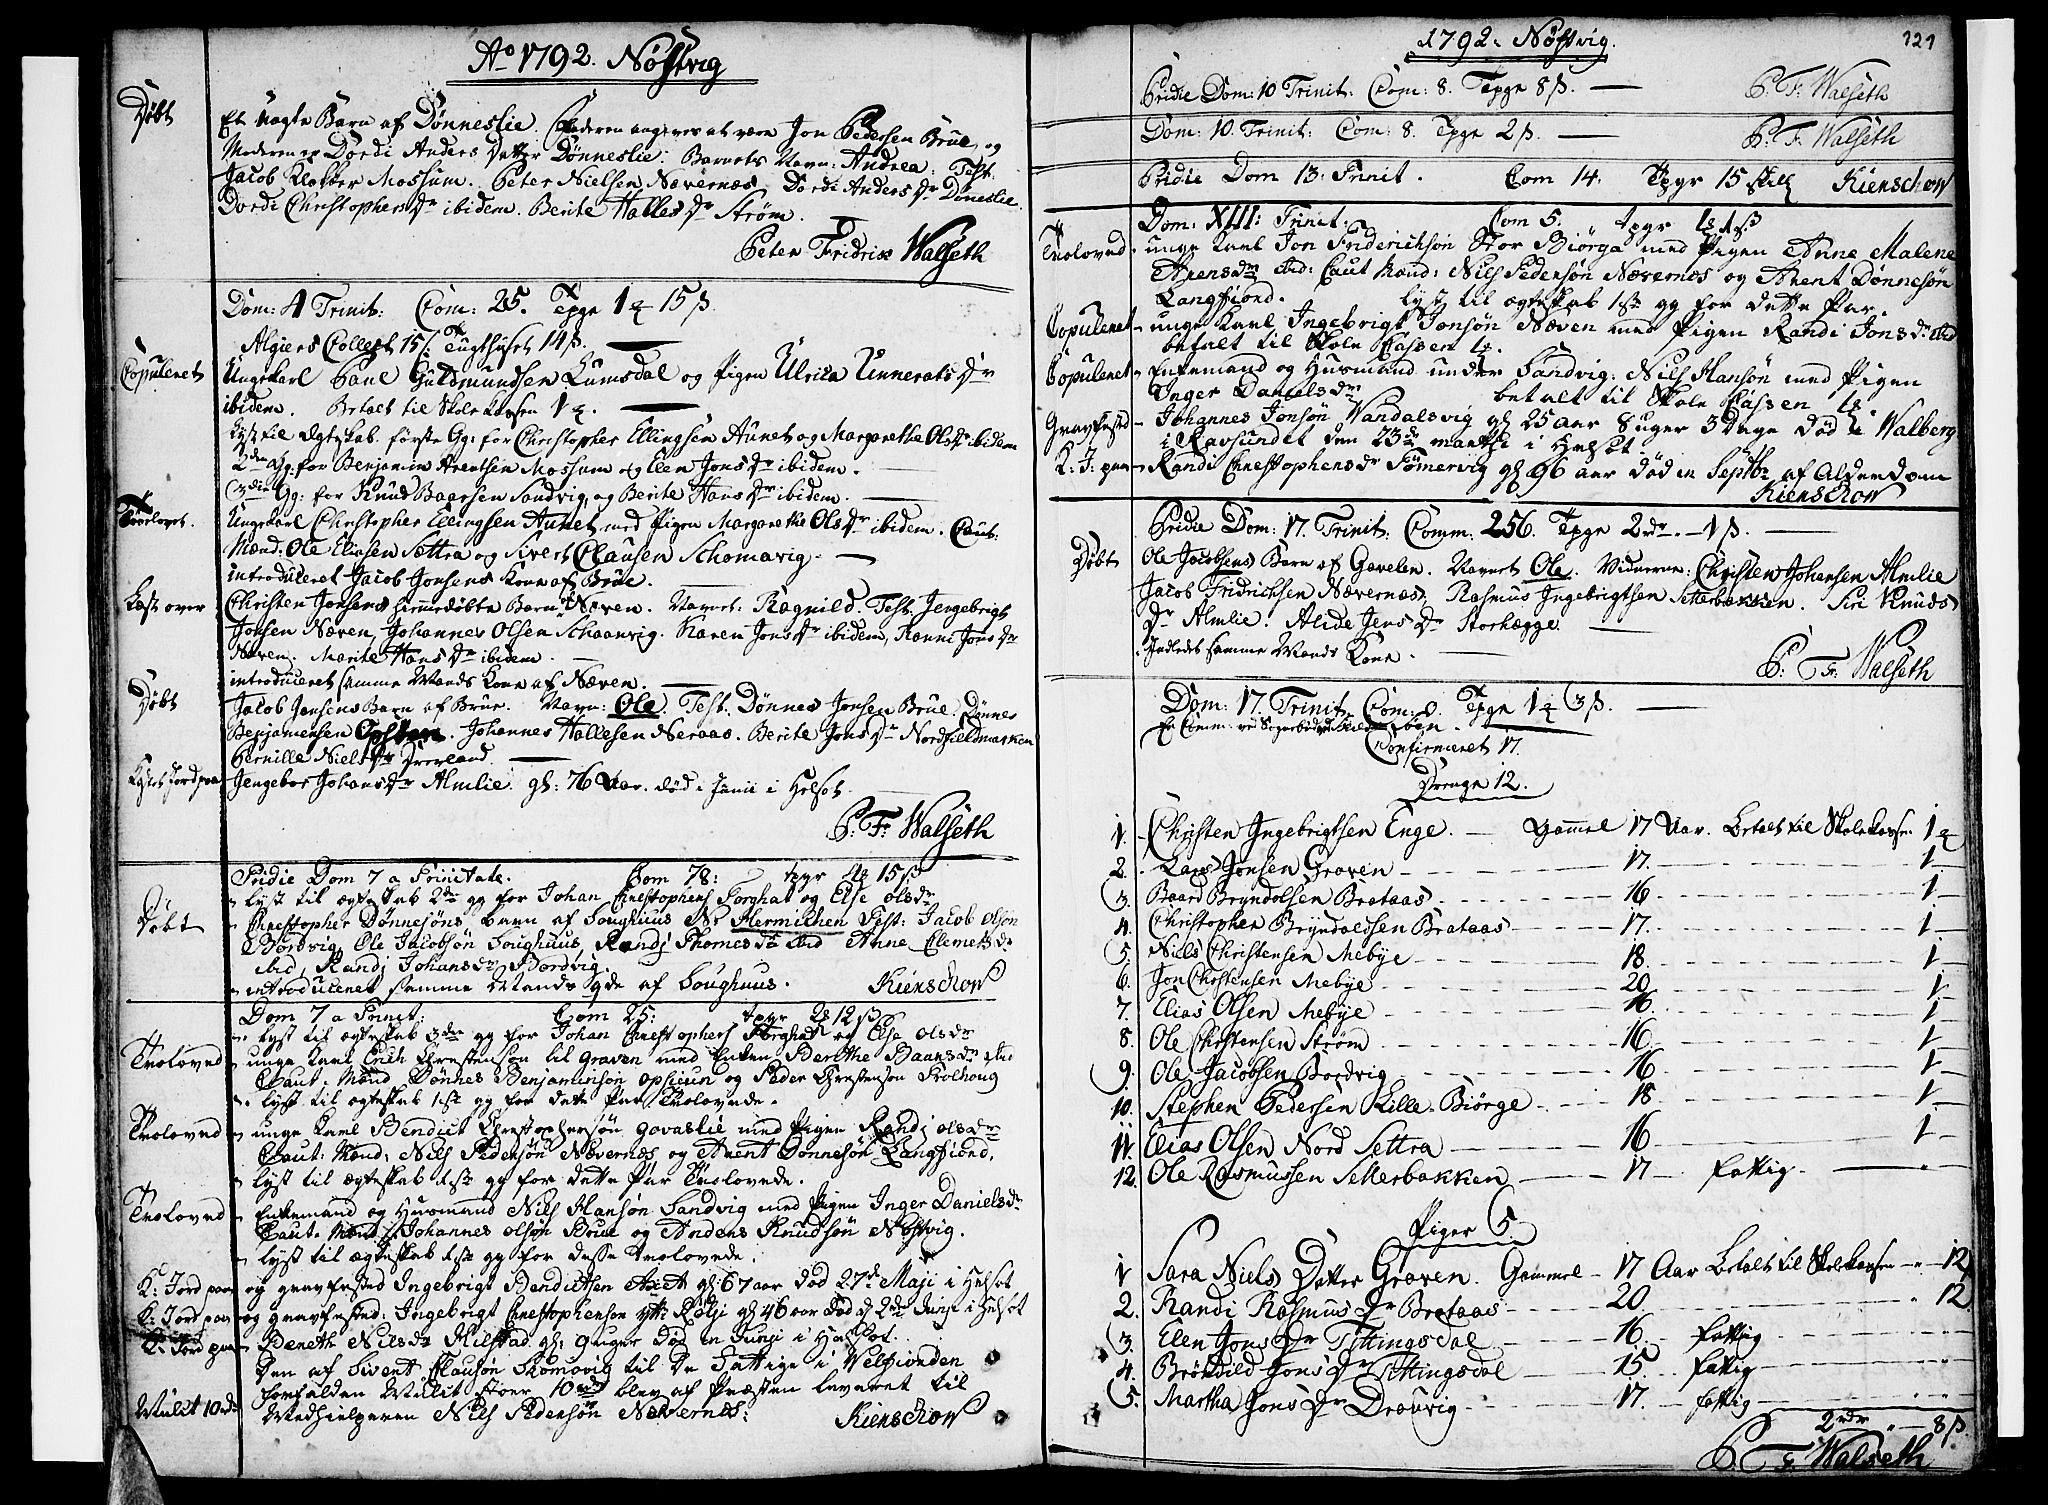 Ao 1792. Nøstvig
Døbt
Et Uægte Barn af Dønneslie. Faderen angives at være Jon Pedersen Brue, og
Moderen er Dordi Anders Datter Dønneslie. Barnets Navn: Andrea. Test.
Jacob Klokker Mossum. Peter Nielsen Nævernæs, Dordi Anders Dr Døneslie.
Dordi Christophers Dr ibidem. Berite Halles Dr Strøm.
Peter Fridrix Walseth
Dom: 4 Trinit: Com: 25. Tpgr 15 ß.
Algiers Collect 15 ß. Tugthuset 14 ß.
Copuleret
Ungekarl Paul Guldmundsen Lumsdal og Pigen Ulrica Unnerats Dr
ibidem. Betalt til Skole Kassen 1
Lyst til Ægteskab første Gg: for Christopher Ellingsen Aunet og Margarethe Ols Dr ibidem
2den Gg. for Benjamin Arentsen Mossum og Elen Jons Dr ibidem.
3die Gg: for Knud Baarsen Sandvig og Berite Hans Dr ibidem.
Troelovet.
Ungekarl Christopher Ellingsen Aunet med Pigen Margarethe Ols Dr ibidem. Caut:
Mænd: Ole Eliasen Settra og Sivert Clausen Schomavig.
introduceret Jacob Jonsens Kone af Brue.
Læst over
Christen Jonsens hiemmedøbte Barn Næven. Navnet: Ragnild. Test. Jengebrigt
Jonsen Næven, Johannes Olsen Schaanvig. Karen Jons Dr ibidem, Ranni Jons Dr
Næven. Marite Hans Dr ibidem.
introduceret samme Mands Kone af Næven.
Døbt
Jacob Jensens Barn af Brue. Navn: Ole. Test. Dønnes Jonsen Brue, Dønnes
Benjamensen. Johannes Hallesen Neraas. Berite Jons Dr Nordfieldmarken
Pernille Niels Dr Drevland.
Kastet Jord paa
Jengebor Johans Dr Almlie. gl: 76 Aar. død i Junii i Helsot.
P. F. Walseth
Pridie Dom 7 a Trinitate. Com 78: tpgr 15 ß
lyst til ægteskab 2de gg for Johan Christophers Torghat og Else olsdr
Døbt
Christopher Dønnesøns barn af Soughuus N: Hermichen Test: Jacob olsøn
Bordvig, Ole Jacobsøn Soughuus, Randj Thomesdr ibid Anne Clemets dr
ibid, Randj Johansdr Bordvig.
introduceret samme Mands qde af Soughuus. Kierschow
Dom 7 a Trinit: Com 25: tpgr 12 ß
lyst til ægteskab 3die gg for Johan Christophers Torghat og Else olsdr
Troloved
unge Karl Erich Christensøn til Graven med Enken Berethe Baarsdr ibid
Caut: Mænd Dønnes Benjaminsøn opsiun og Peder Christensøn Trolhoug
lyst til ægteskab 1ste gg for dette Par Trolovede.
Troloved
unge Karl Bendict Christophersøn govaslie med Pigen Randj olsdr
Caut: Mænd: Nils Pedersøn Nævernæs og Arent Dønnesøn Langfiord,
lyst til ægteskab 1ste gg for dette Par Trolovede.
Troloved
Enkemand og Huusmand Nils Hansøn Sandvig med Pigen Inger Danielsdr
Caut: Mænd Johannes olsøn Brue og Anders Knudsøn Nøstvig.
lyst til ægteskab 1ste gg for disse trolovede.
K: Jord paa
og gravfested Ingebrigt Bendictsen gl: 67 aar død 27de Maji i Helsot
K: Jord paa
og gravfested: Ingebrigt Christophersøn gl 46 aar død d 2de Junji i Helsot
K: Jord paa
Bereth Nilsdr Hilstad gl: 9 uger død in Junji i Helsot.
Den af Sivert Clausøn Skomovig til De Fattige i Velfiorden
forfalden Mulct stoer 10 rdr blev af Præsten leveret til
Mulct 10 rdr
Medhielperen Nils Pedersøn Nævernes: Kierschow
1792. Nøstvig.
121
Pridie Dom: 10 Trinit: Com: 8. Tpgr 8 ß. P. F. Walseth
Dom: 10. Trinit: Com: 8. Tpgr 2 ß. P. F. Walseth
Pridie Dom 13: Trinit. Com 14. Tpgr 15 skill Kierschow
Dom: XIII: Trinit: Com 5. tpgr
Troloved
unge Karl Jon Friderichsøn Stor Biørga med Pigen Anne Malene
Arensdr ibid: Caut Mænd: Nils Pedersøn Nævernes og Arent Dønnesøn
Langfiord. lyst til ægteskab 1ste gg for dette Par.
Copuleret
unge Karl Ingebrigt Jonsøn Næven med Pigen Randi Jonsdr ibid
betalt til Skole Cassen
Copuleret
Enkemand og Huusmand under Sandvig: Nils Hansøn med Pigen
Inger Danielsdr betalt til Skole Cassen
Gravfested
Johannes Jonsøn Vandalsvig gl 25 aar 8 uger 3 Dage Død i Walberg
i Ravsundet den 23de martii i Helsot.
K: J: paa
Randi Christophersdr Somervig gl 96 aar død in Septbr af Alderdom
Kierschow
Pridie Dom: 17. Trinit: Comm: 256. Tpgr 2 1 ß.
Døbt
Ole Jacobsens Barn af Gavelen. Navnet Ole. Vidnerne: Christen Johansen Almlie
Jacob Fridrichsen Nævernæs, Rasmus Ingebrigtsen Setterbakken. Siri Knuds
Dr Almlie. Alide Jens Dr Storhægge.
Indledt samme Mands Kone.
P. F. Walseth
Dom: 17. Trinit. Com: 8. Tpgr 1 3 ß.
Confirmeret 17.
Drenge 12.
1. Christen Ingebrigtsen Enge. Gammel 17 Aar. Betalt til Skolekassen 1
2. Lars Jonsen Graven 17. 1
3. Baard Bryndelsen Brataas 16 1
4. Christopher Bryndelsen Brataas 17. 1
5. Niels Christensen Mebye 18. 1
6. Jon Christensen Mebye 20 1
7. Elias Olsen Mebye 16. 1
8. Ole Christensen Strøm 16 1
9. Ole Jacobsen Bordvig 16 1
10. Stephen Pedersen Lille-Biørge 18 1
11. Elias Olsen Nord Settra 16 1
12. Ole Rasmussen Setterbakken 17 fattig.
Piger 5.
1 Sara Niels Datter Graven. Gammel 17 Aar Betalt til Skolekassen 12
2. Randi Rasmus Dr Brataas 20 12
3. Elen Jons Dr Tettingsdal 16. fattig
4. Brønild Jons Dr Tettingsdal 15 fattig
5. Martha Jons Dr Drouvig 17. fattig
2 rdr 8 ß
P. F. Walseth